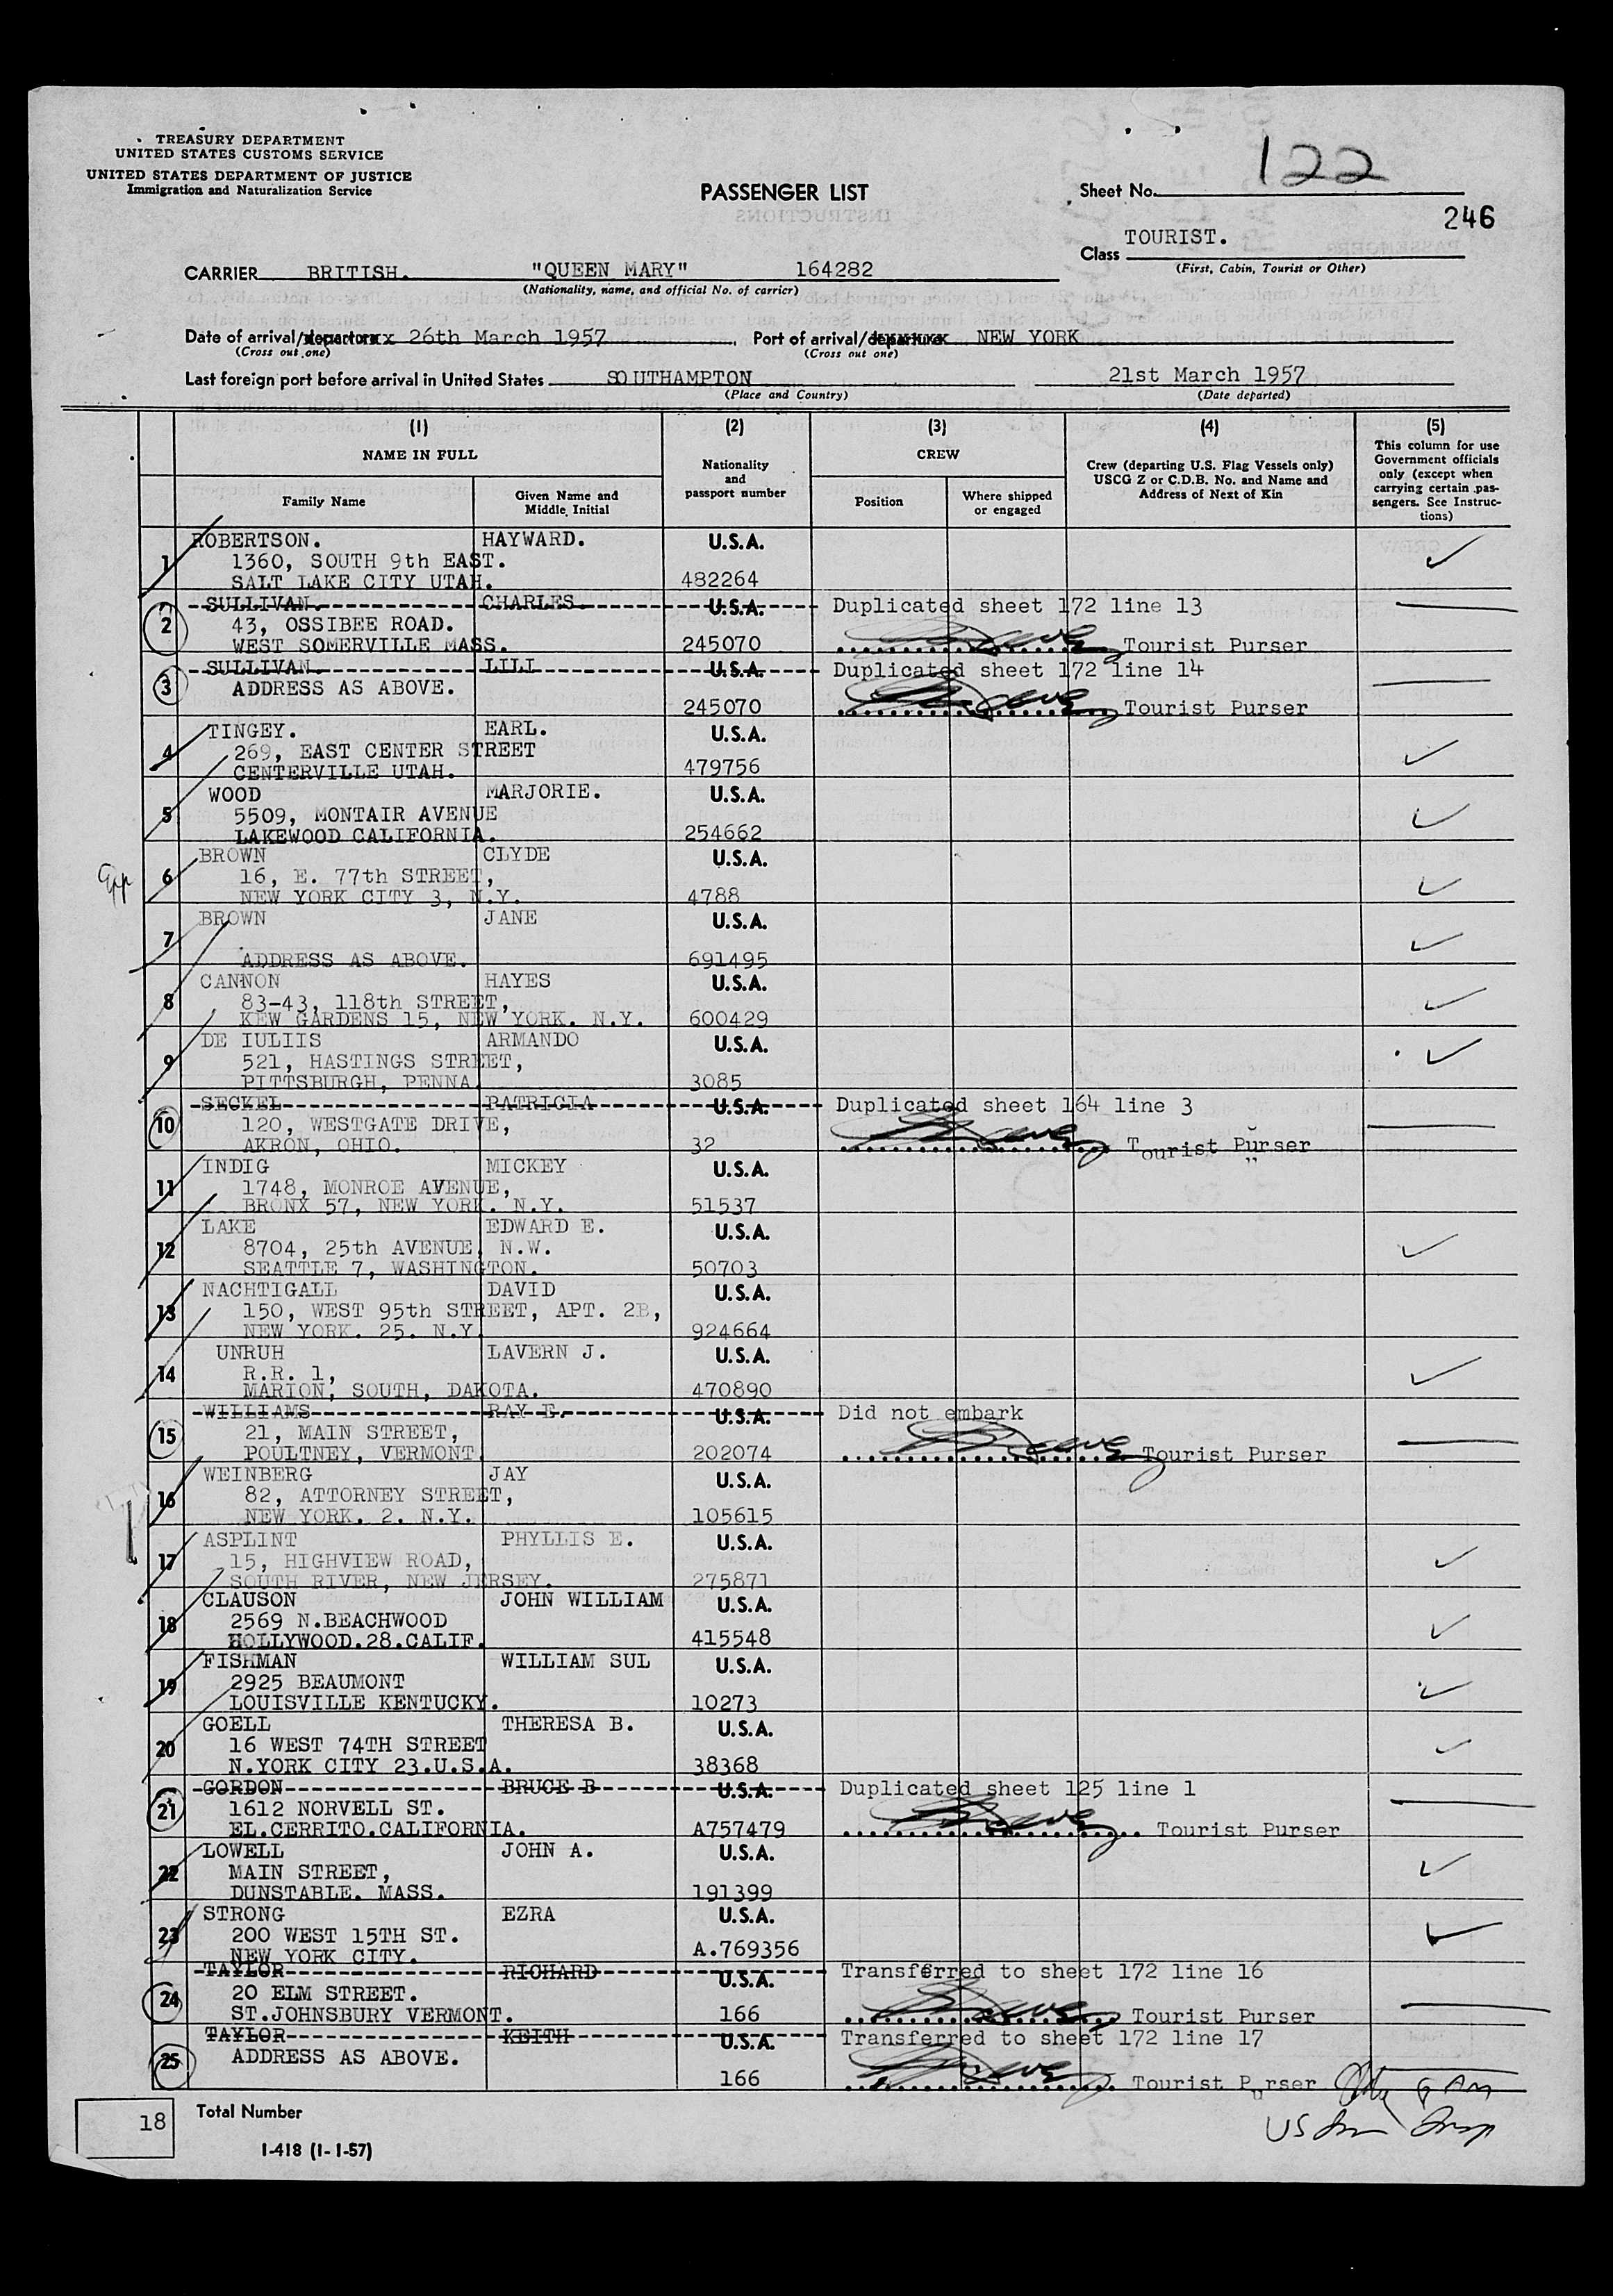 TREASURY DEPARTMENT
UNITED STATES CUSTOMS SERVICE
UNITED STATES DEPARTMENT OF JUSTICE
Immigration and Naturalization Service
PASSENGER LIST
Sheet No. 122
246
Class TOURIST.
(First, Cabin, Tourist or Other)
CARRIER BRITISH. "QUEEN MARY" 164282
(Nationality, name, and official No. of carrier)
Date of arrival/departure 26th March 1957 Port of arrival/departure NEW YORK
(Cross out one) (Cross out one)
Last foreign port before arrival in United States SOUTHAMPTON 21st March 1957
(Place and Country) (Date departed)
(1) (2) (3) (4) (5)
NAME IN FULL Nationality and passport number CREW Crew (departing U.S. Flag Vessels only) USCG Z or C.D.B. No. and Name and Address of Next of Kin This column for use Government officials only (except when carrying certain passengers. See Instructions)
Family Name Given Name and Middle Initial Position Where shipped or engaged
1 ROBERTSON. HAYWARD. U.S.A.
1360, SOUTH 9th EAST.
SALT LAKE CITY UTAH. 482264
2 SULLIVAN. CHARLES. U.S.A. Duplicated sheet 172 line 13
43, OSSIBEE ROAD.
WEST SOMERVILLE MASS. 245070 Tourist Purser
3 SULLIVAN. LILI U.S.A. Duplicated sheet 172 line 14
ADDRESS AS ABOVE.
245070 Tourist Purser
4 TINGEY. EARL. U.S.A.
269, EAST CENTER STREET
CENTERVILLE UTAH. 479756
5 WOOD MARJORIE. U.S.A.
5509, MONTAIR AVENUE
LAKEWOOD CALIFORNIA. 254662
6 BROWN CLYDE U.S.A.
16, E. 77th STREET,
NEW YORK CITY 3, N.Y. 4788
7 BROWN JANE U.S.A.
ADDRESS AS ABOVE. 691495
8 CANNON HAYES U.S.A.
83-43, 118th STREET,
KEW GARDENS 15, NEW YORK. N.Y. 600429
9 DE IULIIS ARMANDO U.S.A.
521, HASTINGS STREET,
PITTSBURGH, PENNA. 3085
10 SECKEL PATRICIA U.S.A. Duplicated sheet 164 line 3
120, WESTGATE DRIVE,
AKRON, OHIO. 32 Tourist Purser
11 INDIG MICKEY U.S.A.
1748, MONROE AVENUE,
BRONX 57, NEW YORK. N.Y. 51537
12 LAKE EDWARD E. U.S.A.
8704, 25th AVENUE, N.W.
SEATTLE 7, WASHINGTON. 50703
13 NACHTIGALL DAVID U.S.A.
150, WEST 95th STREET, APT. 2B,
NEW YORK. 25. N.Y. 924664
14 UNRUH LAVERN J. U.S.A.
R.R. 1,
MARION, SOUTH, DAKOTA. 470890
15 WILLIAMS RAY E. U.S.A. Did not embark
21, MAIN STREET,
POULTNEY, VERMONT 202074 Tourist Purser
16 WEINBERG JAY U.S.A.
82, ATTORNEY STREET,
NEW YORK. 2. N.Y. 105615
17 ASPLINT PHYLLIS E. U.S.A.
15, HIGHVIEW ROAD,
SOUTH RIVER, NEW JERSEY. 275871
18 CLAUSON JOHN WILLIAM U.S.A.
2569 N.BEACHWOOD
HOLLYWOOD.28.CALIF. 415548
19 FISHMAN WILLIAM SUL U.S.A.
2925 BEAUMONT
LOUISVILLE KENTUCKY. 10273
20 GOELL THERESA B. U.S.A.
16 WEST 74TH STREET
N.YORK CITY 23.U.S.A. 38368
21 GORDON BRUCE B U.S.A. Duplicated sheet 125 line 1
1612 NORVELL ST.
EL.CERRITO.CALIFORNIA. A757479 Tourist Purser
22 LOWELL JOHN A. U.S.A.
MAIN STREET,
DUNSTABLE. MASS. 191399
23 STRONG EZRA U.S.A.
200 WEST 15TH ST.
NEW YORK CITY. A.769356
24 TAYLOR RICHARD U.S.A. Transferred to sheet 172 line 16
20 ELM STREET.
ST.JOHNSBURY VERMONT. 166 Tourist Purser
25 TAYLOR KEITH U.S.A. Transferred to sheet 172 line 17
ADDRESS AS ABOVE.
166 Tourist Purser
18 Total Number
US Imm Insp
I-418 (1-1-57)